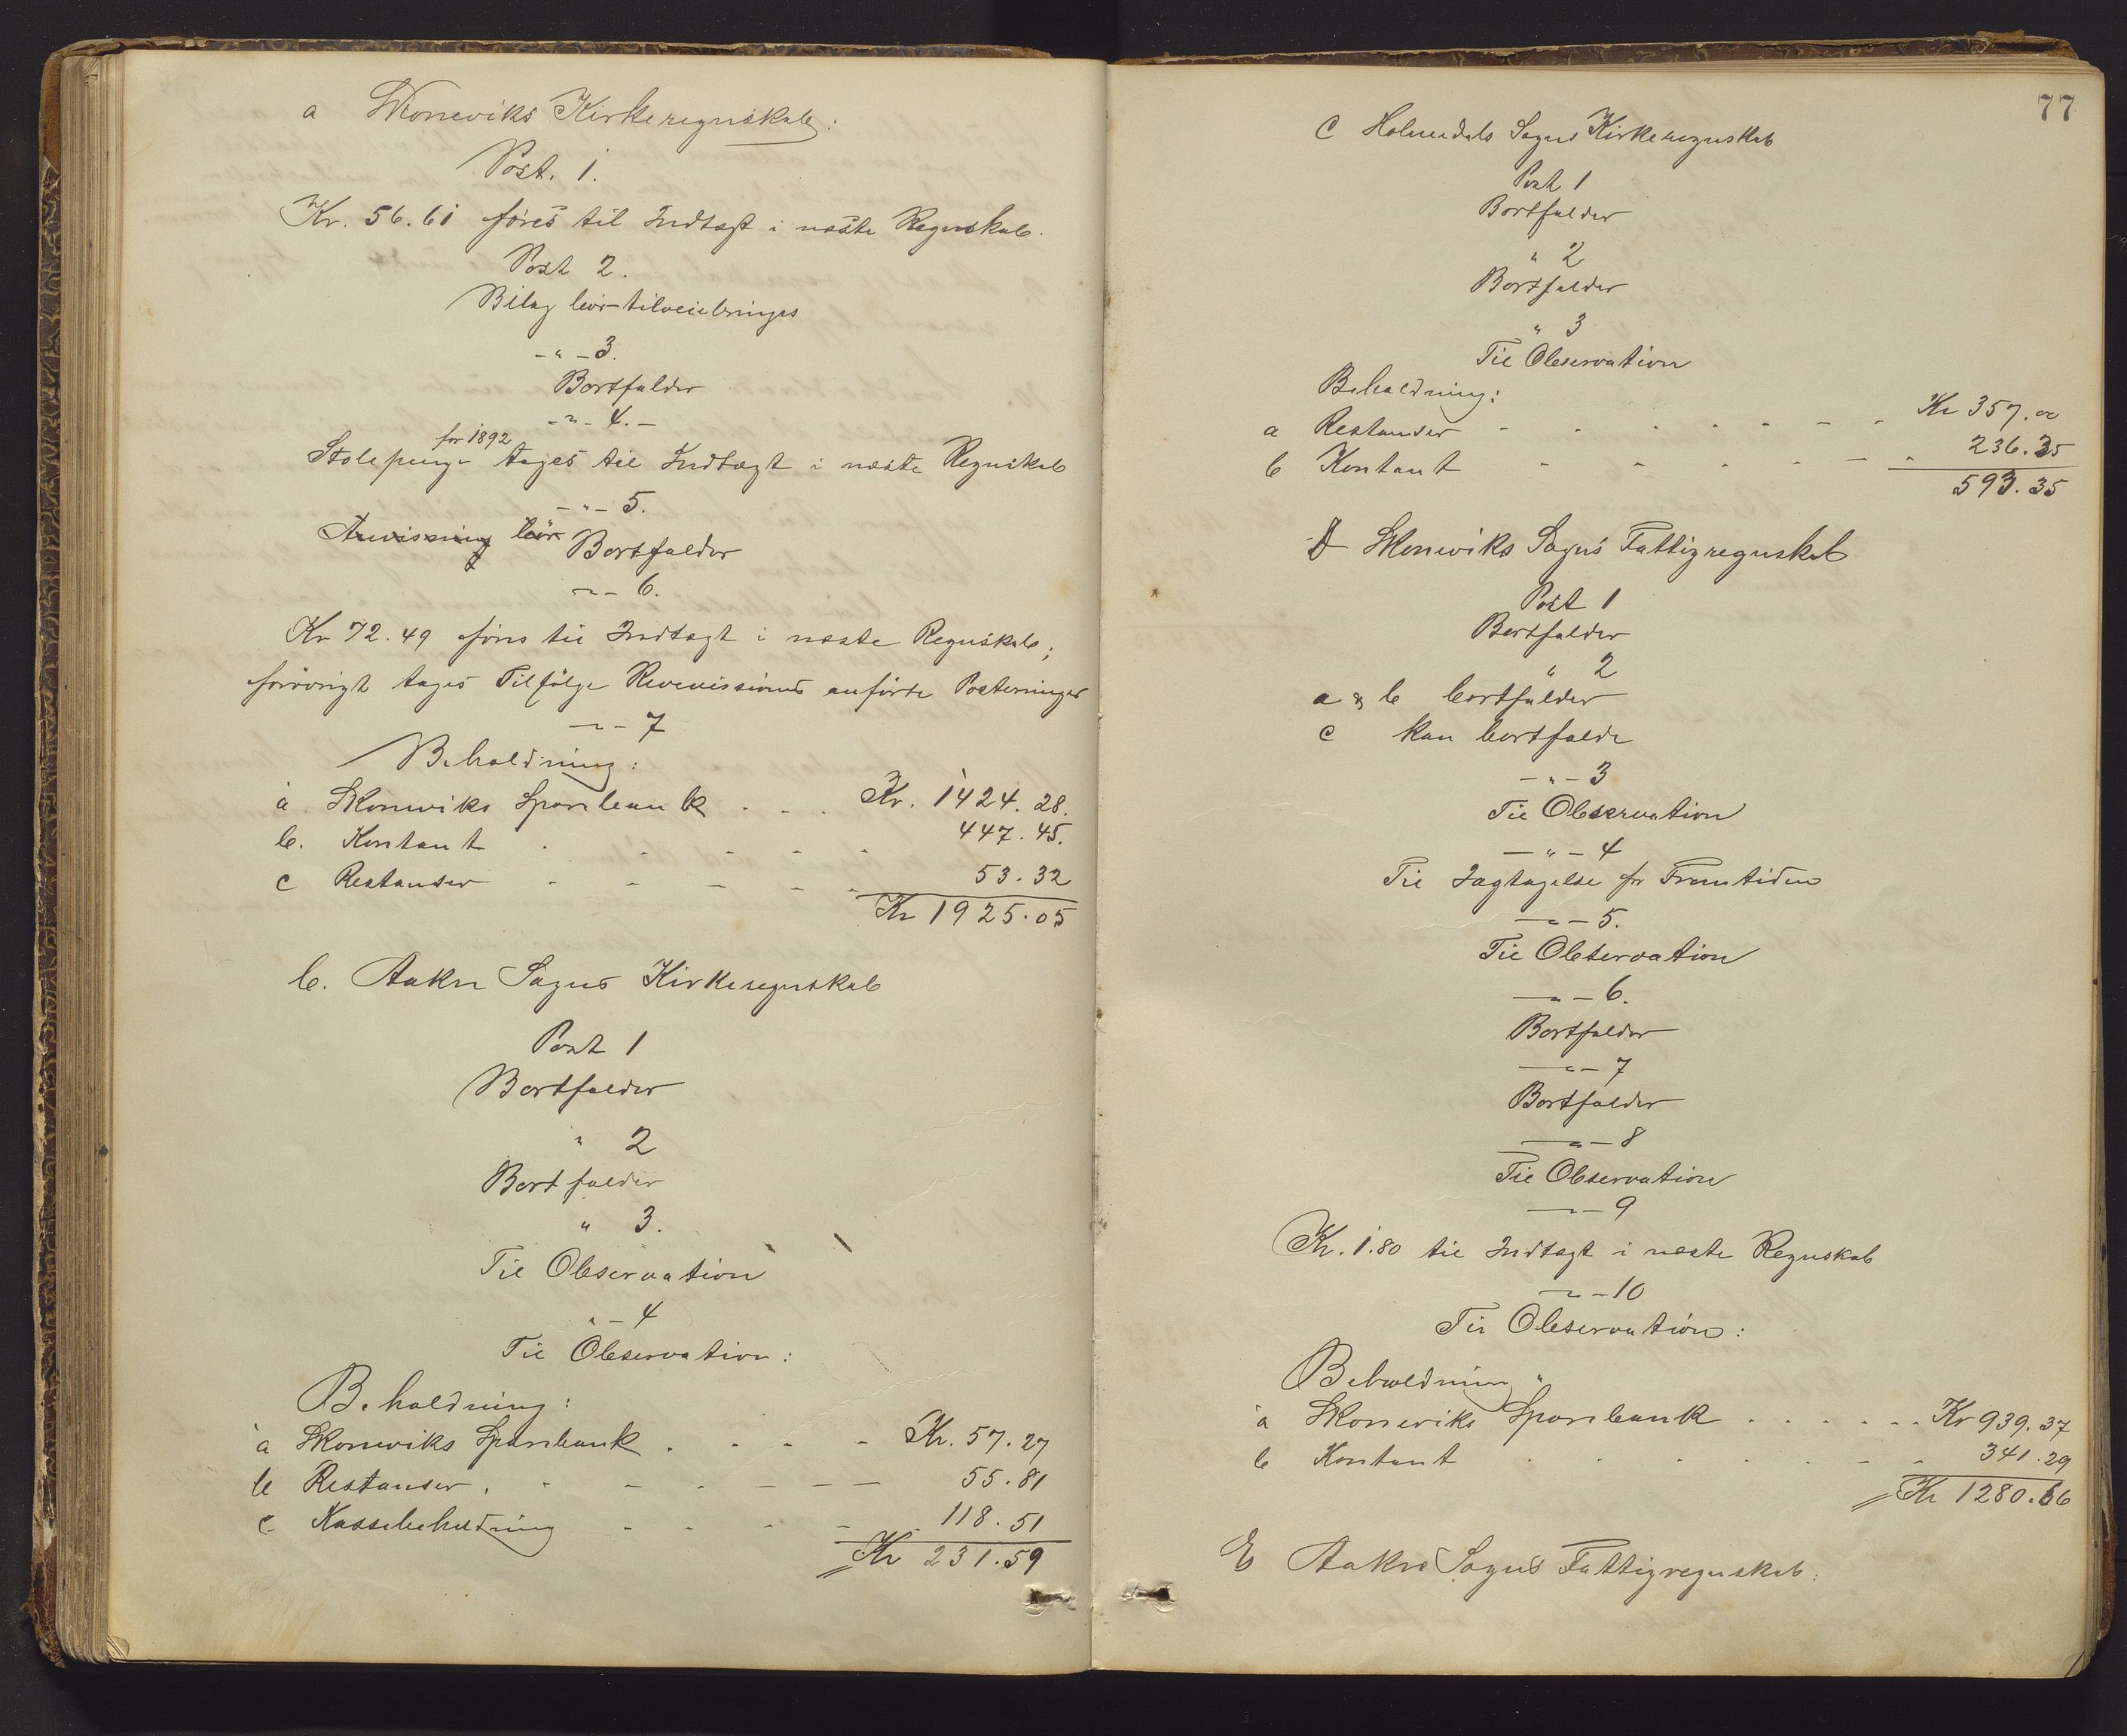 a Skoneviks Kirkeregnskab:
Post. 1.
Kr. 56.61 föres til Indtægt i næste Regnskab.
Post 2.
Bilag bör tilveiebringes
-"-3.
Bortfalder
-"- 4.-
for 1892
Stolepenge tages til Indtægt i næste Regnskab
-"-5.
Anvisning bör Bortfalder
-"- 6.
Kr 72.49 föres til Indtægt i næste Regnskab;
forövrigt tages Tilfölge Revisionens anförte Posteringer
-"- 7
Beholdning:
a Skoneviks Sparebank . . . Kr. 1424.28.
b. Kontant . - - - - - 447.45.
c Restanser - - - - - - 53.32
Kr 1925.05
b. Aakre Sogns Kirkeregnskab
Post 1
Bortfalder
" 2
Bortfalder
" 3.
Til Observation
" - 4
Til Observation:
Beholdning:
a Skoneviks Sparebank . - - - - Kr. 57.27
b Restanser . - - - - - - 55.81
c Kassebeholdning - - - - - 118.51
Kr 231.59
77
C Holmedals Sogns Kirkeregnskab
Post 1
Bortfalder
" 2
Bortfalder
" 3
Til Observation
Beholdning:
a Restanser - - - - - - - - Kr 357.00
b Kontant - - - - - - 236.35
593.35
D Skoneviks Sogns Fattigregnskab
Post 1
Bortfalder
" 2
a & b bortfalder
c kan bortfalde
-"-3
Til Observation
-"-4
Til Iagtagelse for Fremtiden
-"-5.
Til Observation
-"-6.
Bortfalder
-"-7
Bortfalder
-"-8
Til Observation
-"-9
Kr. 1.80 til Indtægt i næste Regnskab
-"-10
Til Observation:
Beholdning "
a Skoneviks Sparebank . . . . . . Kr 939.37
b Kontant . . . . . - - 341.29
Kr 1280.66
E Aakre Sogns Fattigregnskab: